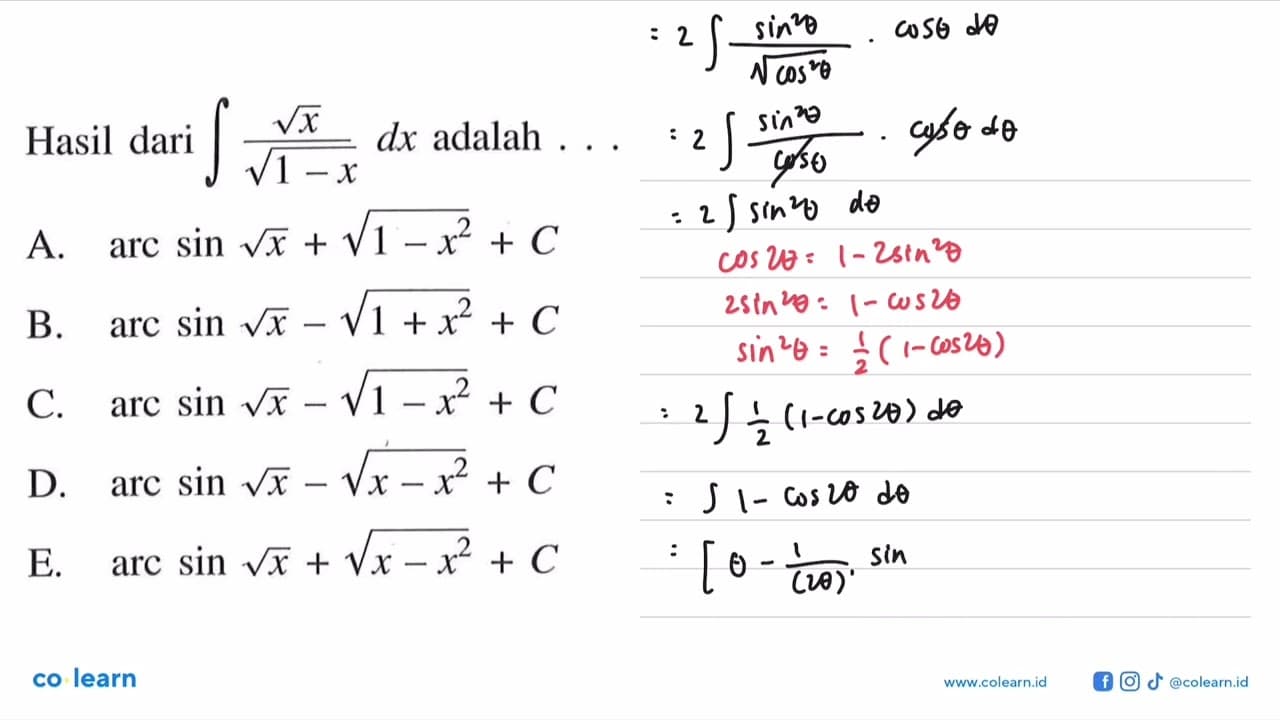 Hasil dari ∫ √x / √(1 − x) dx adalah . . .
A. arc sin √x + √(1 − x²) + C
B. arc sin √x − √(1 + x²) + C
C. arc sin √x − √(1 − x²) + C
D. arc sin √x − √(x − x²) + C
E. arc sin √x + √(x − x²) + C
= 2 ∫ sin²θ / √(cos²θ) . cosθ dθ
= 2 ∫ sin²θ / cosθ . cosθ dθ
= 2 ∫ sin²θ dθ
cos 2θ = 1 − 2sin²θ
2sin²θ = 1 − cos2θ
sin²θ = 1/2 (1 − cos2θ)
= 2 ∫ 1/2 (1 − cos 2θ) dθ
= ∫ 1 − cos 2θ dθ
= [ θ − 1/(2θ)' sin
co learn
www.colearn.id
@colearn.id